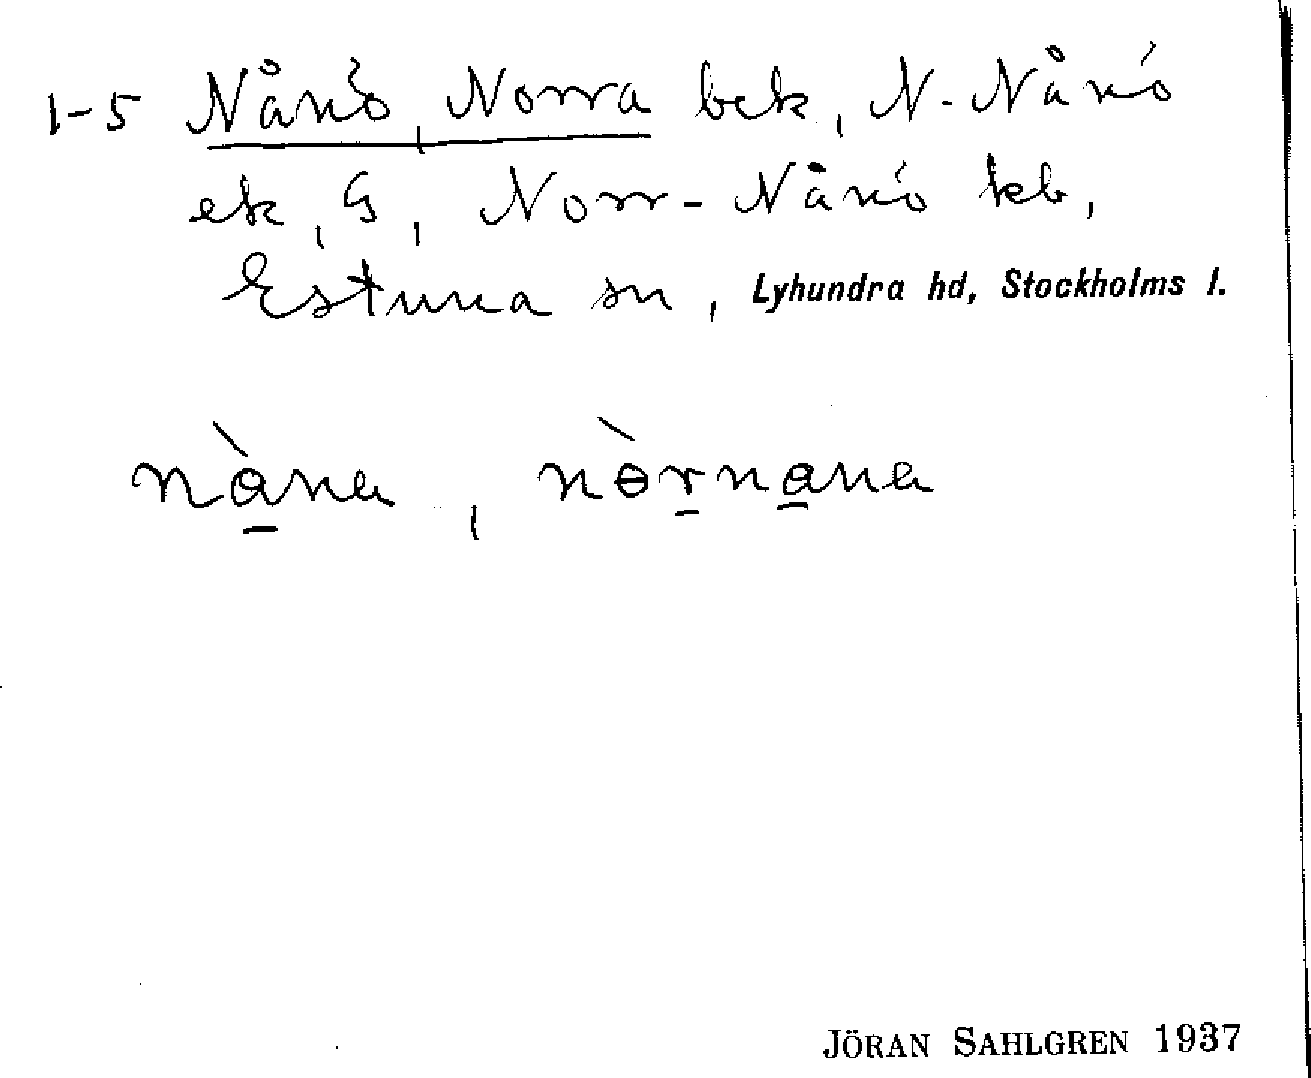 1-5 Nånö, Norra bek, N. Nånö
ek, G, Norr-Nånö kb,
Estuna sn, Lyhundra hd, Stockholms l.
nàna, nòrnana
JÖRAN SAHLGREN 1937